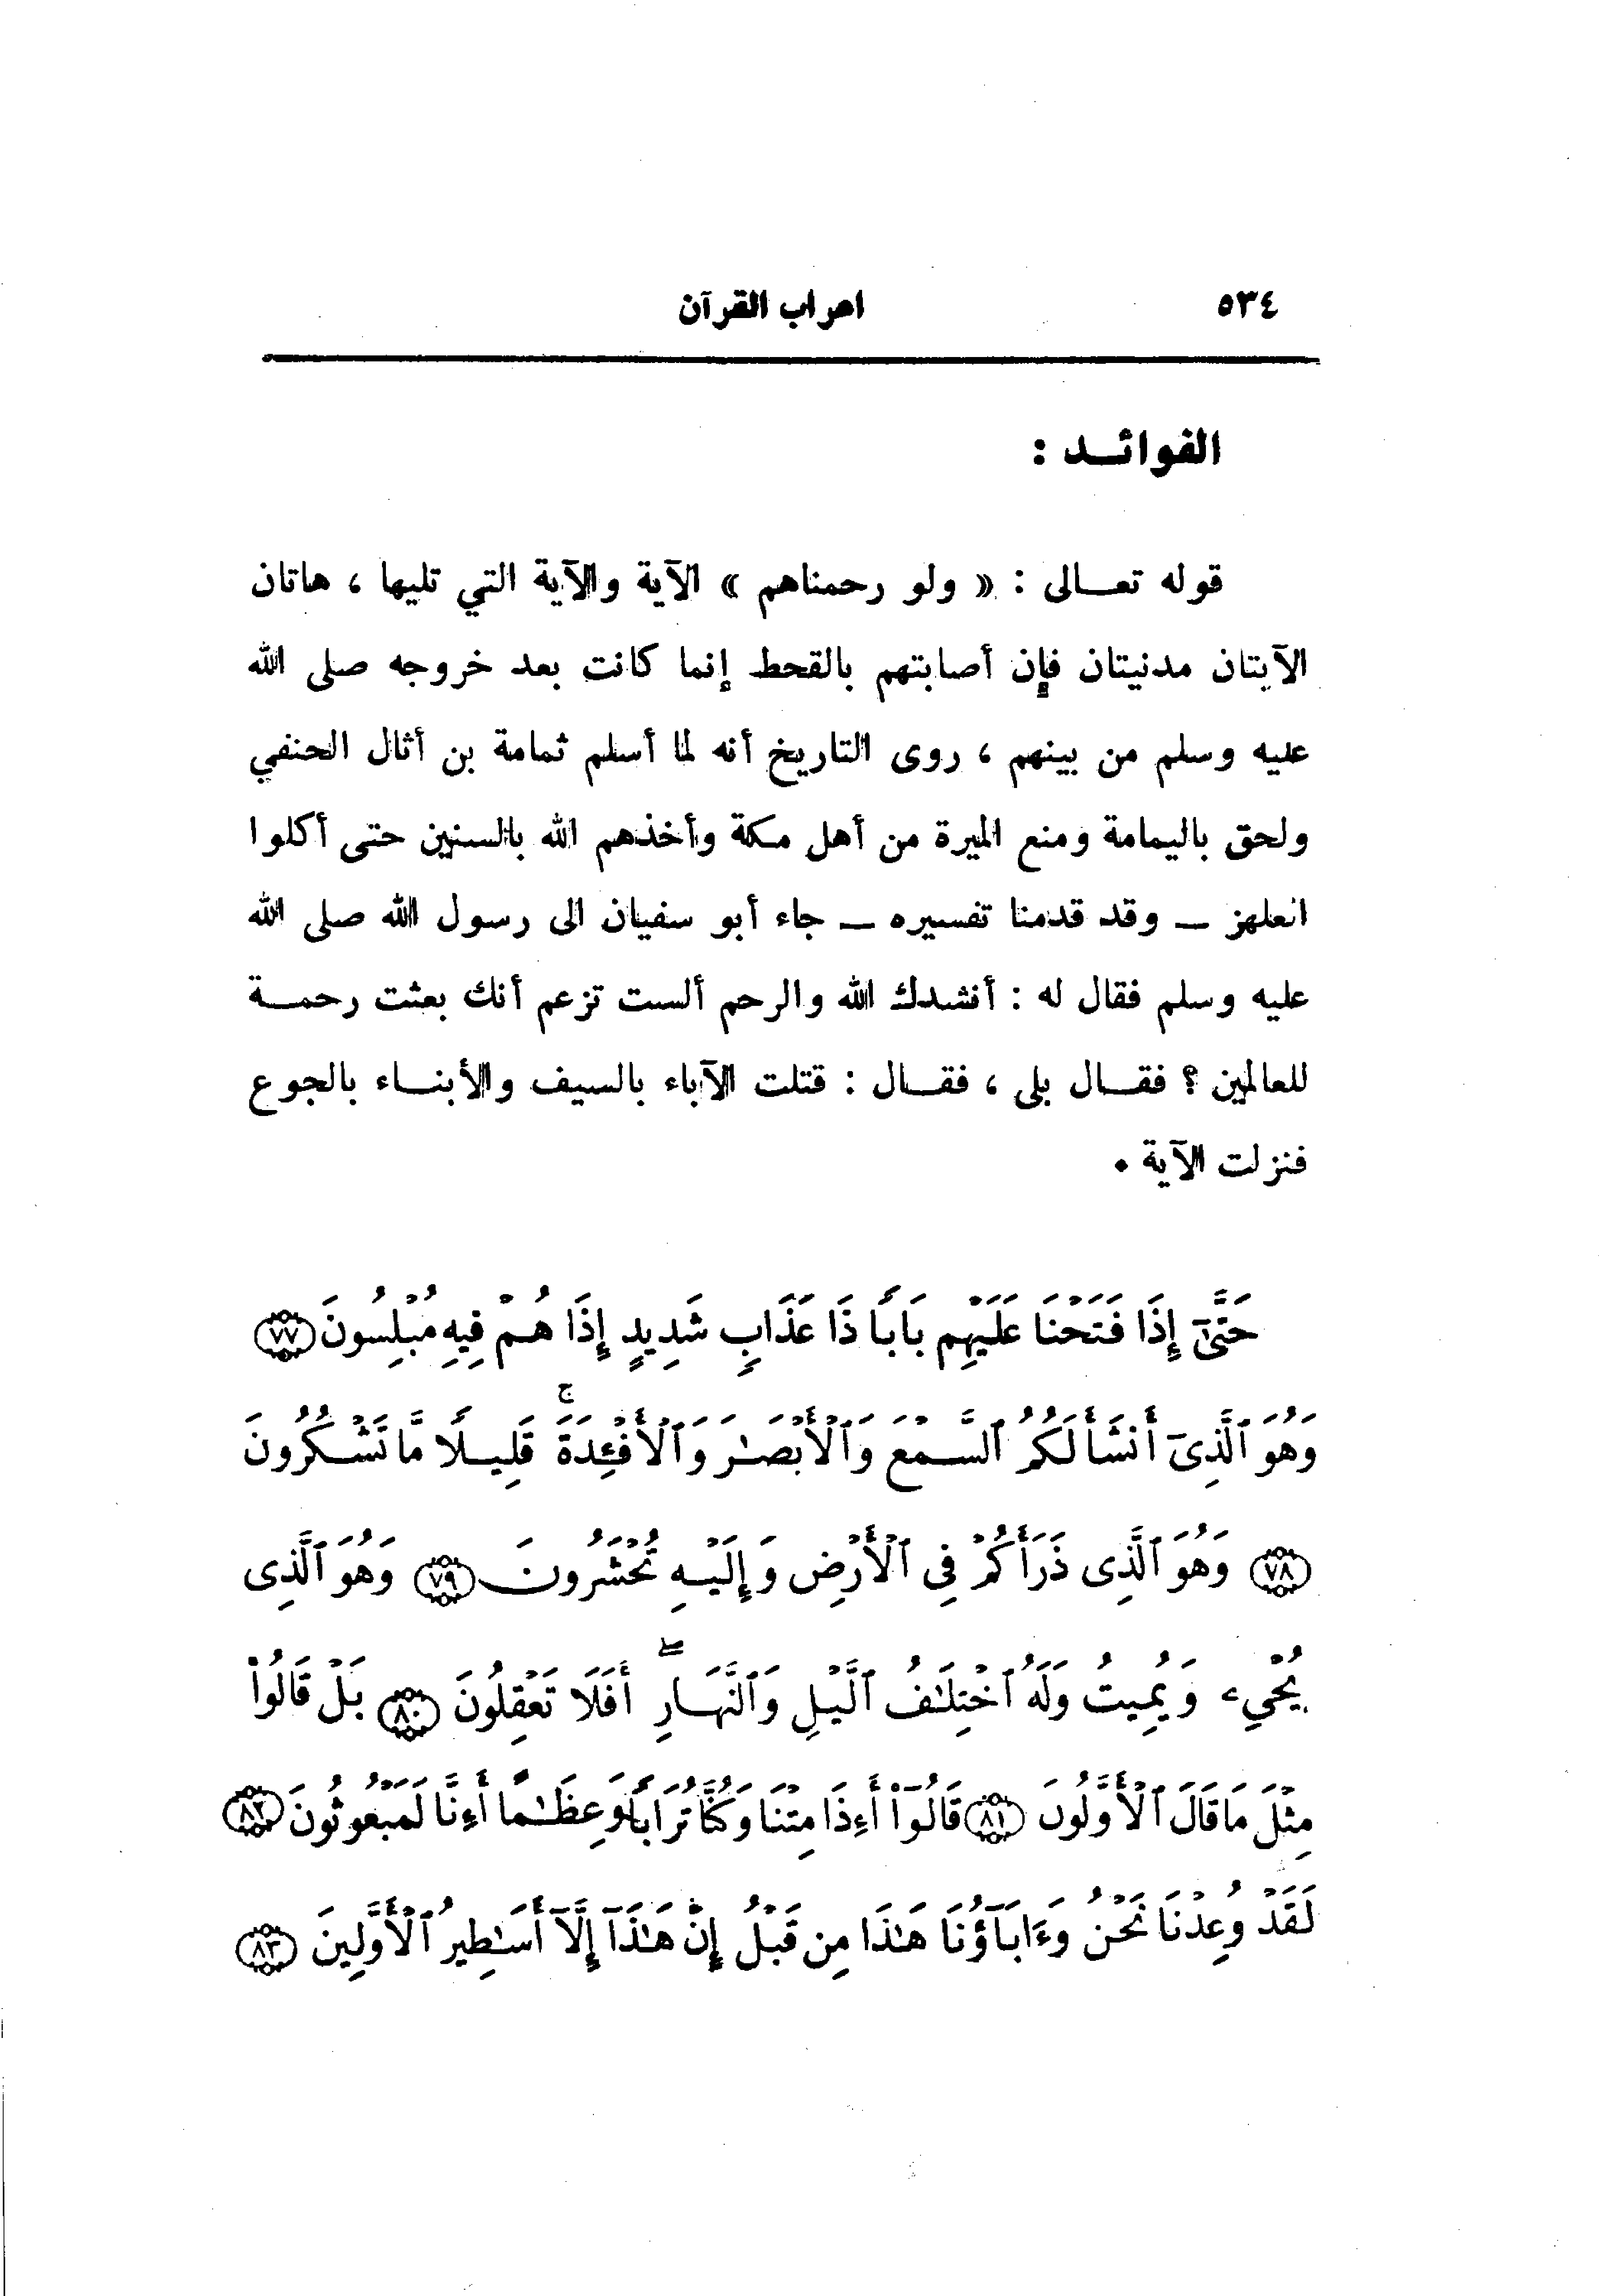 ٥٣٤ اعراب القرآن
الفوائـد :
قوله تعـالى : « ولو رحمناهم » الآية والآية التي تليها ، هاتان
الآيتان مدنيتان فإن أصابتهم بالقحط إنما كانت بعد خروجه صلى الله
عليه وسلم من بينهم ، روى التاريخ أنه لما أسلم ثمامة بن أثال الحنفي
ولحق باليمامة ومنع الميرة من أهل مكة وأخذهم الله بالسنين حتى أكلوا
العلهز ـ وقد قدمنا تفسيره ـ جاء أبو سفيان الى رسول الله صلى الله
عليه وسلم فقال له : أنشدك الله والرحم ألست تزعم أنك بعثت رحمـة
للعالمين ؟ فقـال بلى ، فقـال : قتلت الآباء بالسيف والأبنـاء بالجوع
فنزلت الآية .
حَتَّىٰٓ إِذَا فَتَحْنَا عَلَيْهِم بَابًا ذَا عَذَابٍ شَدِيدٍ إِذَا هُمْ فِيهِ مُبْلِسُونَ ٧٧
وَهُوَ ٱلَّذِىٓ أَنشَأَ لَكُمُ ٱلسَّمْعَ وَٱلْأَبْصَٰرَ وَٱلْأَفْـِٔدَةَ ۚ قَلِيلًا مَّا تَشْكُرُونَ
٧٨ وَهُوَ ٱلَّذِى ذَرَأَكُمْ فِى ٱلْأَرْضِ وَإِلَيْهِ تُحْشَرُونَ ٧٩ وَهُوَ ٱلَّذِى
يُحْىِۦ وَيُمِيتُ وَلَهُ ٱخْتِلَٰفُ ٱلَّيْلِ وَٱلنَّهَارِ ۖ أَفَلَا تَعْقِلُونَ ٨٠ بَلْ قَالُوا۟
مِثْلَ مَا قَالَ ٱلْأَوَّلُونَ ٨١ قَالُوٓا۟ أَءِذَا مِتْنَا وَكُنَّا تُرَابًا وَعِظَٰمًا أَءِنَّا لَمَبْعُوثُونَ ٨٢
لَقَدْ وُعِدْنَا نَحْنُ وَءَابَآؤُنَا هَٰذَا مِن قَبْلُ إِنْ هَٰذَآ إِلَّآ أَسَٰطِيرُ ٱلْأَوَّلِينَ ٨٣